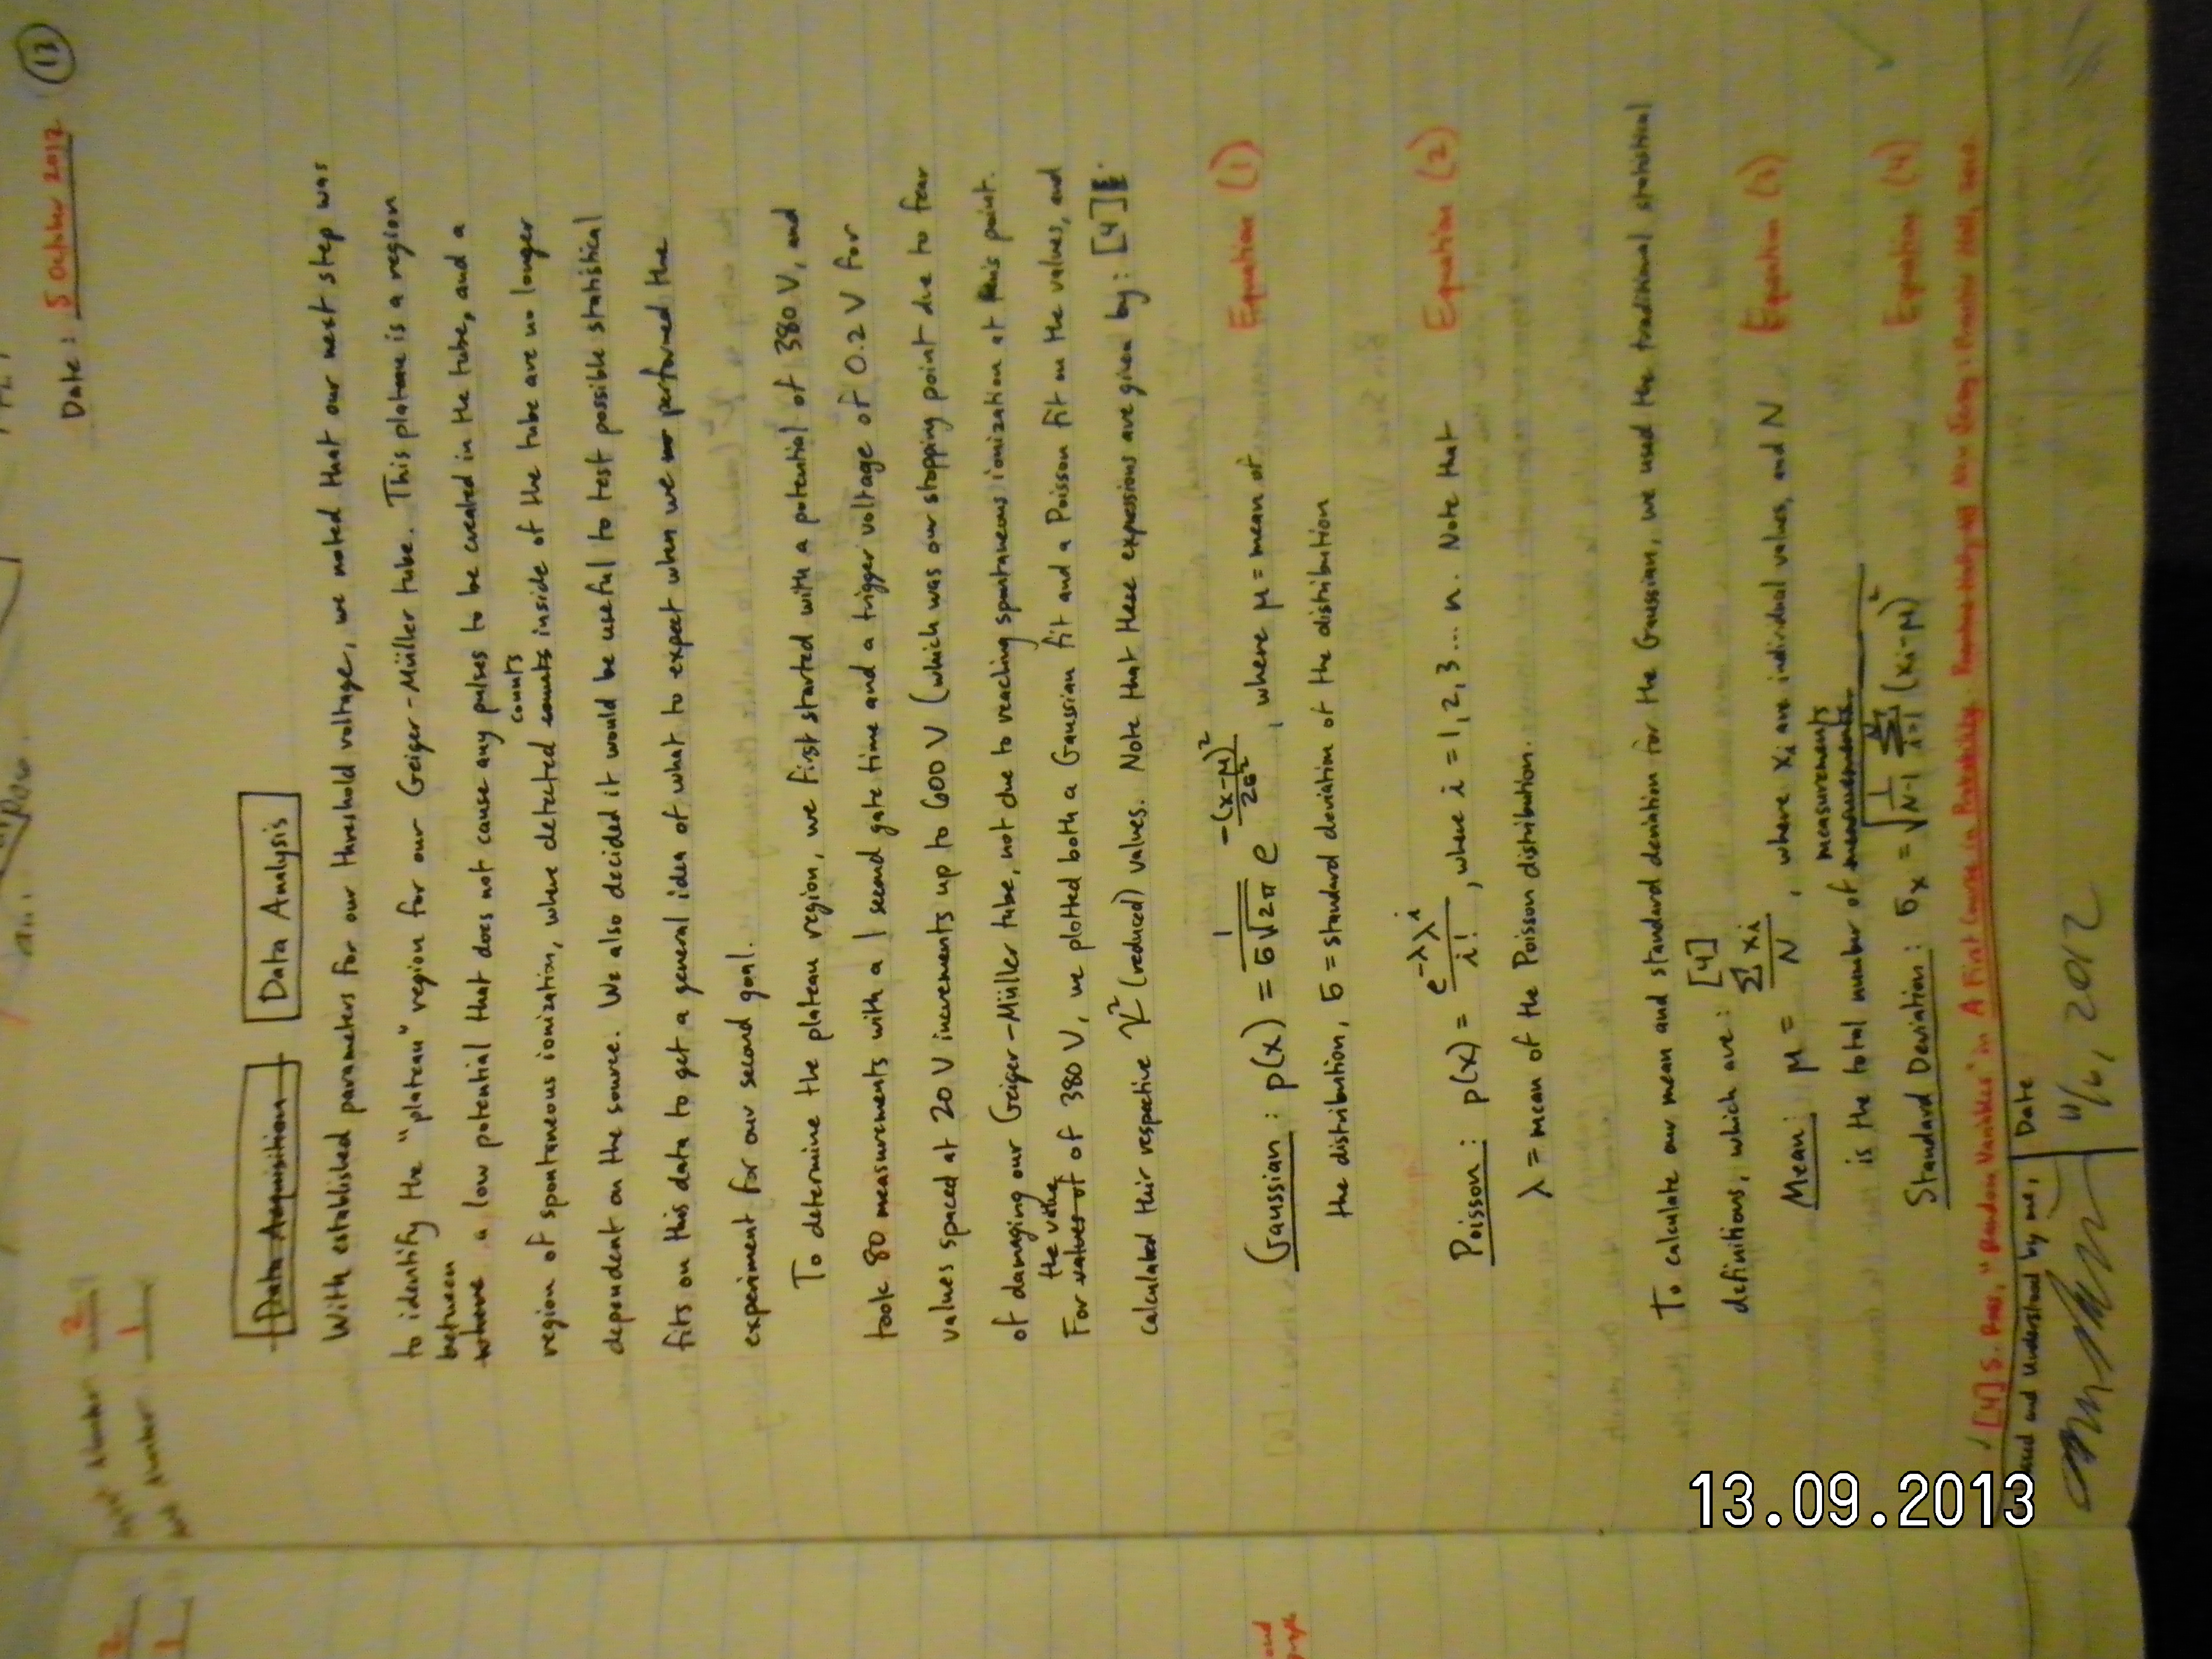 Date: 5 October 2012 (13)
Data Acquisition Data Analysis
With established parameters for our threshold voltage, we noted that our next step was
to identify the "plateau" region for our Geiger-Müller tube. This plateau is a region
between
where a low potential that does not cause any pulses to be created in the tube, and a
counts
region of spontaneous ionization, where detected counts inside of the tube are no longer
dependent on the source. We also decided it would be useful to test possible statistical
fits on this data to get a general idea of what to expect when we performed the
experiment for our second goal.
To determine the plateau region, we first started with a potential of 380 V, and
took 80 measurements with a 1 second gate time and a trigger voltage of 0.2 V for
values spaced at 20 V increments up to 600 V (which was our stopping point due to fear
of damaging our Geiger-Müller tube, not due to reaching spontaneous ionization at this point.
the value
For values of of 380 V, we plotted both a Gaussian fit and a Poisson fit on the values, and
calculated their respective χ² (reduced) values. Note that these expressions are given by: [4]
Gaussian: p(x) = 1/(σ√2π) e^(-(x-μ)²/2σ²), where μ = mean of Equation (1)
the distribution, σ = standard deviation of the distribution
Poisson: p(x) = e^-λ λ^i / i!, where i = 1, 2, 3... n. Note that Equation (2)
λ = mean of the Poisson distribution.
To calculate our mean and standard deviation for the Gaussian, we used the traditional statistical
definitions, which are: [4]
Mean: μ = Σ xi / N, where xi are individual values, and N Equation (3)
measurements
is the total number of measurements.
Standard Deviation: σx = √(1/(N-1) Σ i=1 N (xi-μ)²) Equation (4)
[4] S. Ross, "Random Variables" in A First Course in Probability. New Jersey: Prentice Hall, 2010.
and Understood by me, Date
11/6, 2012
13.09.2013